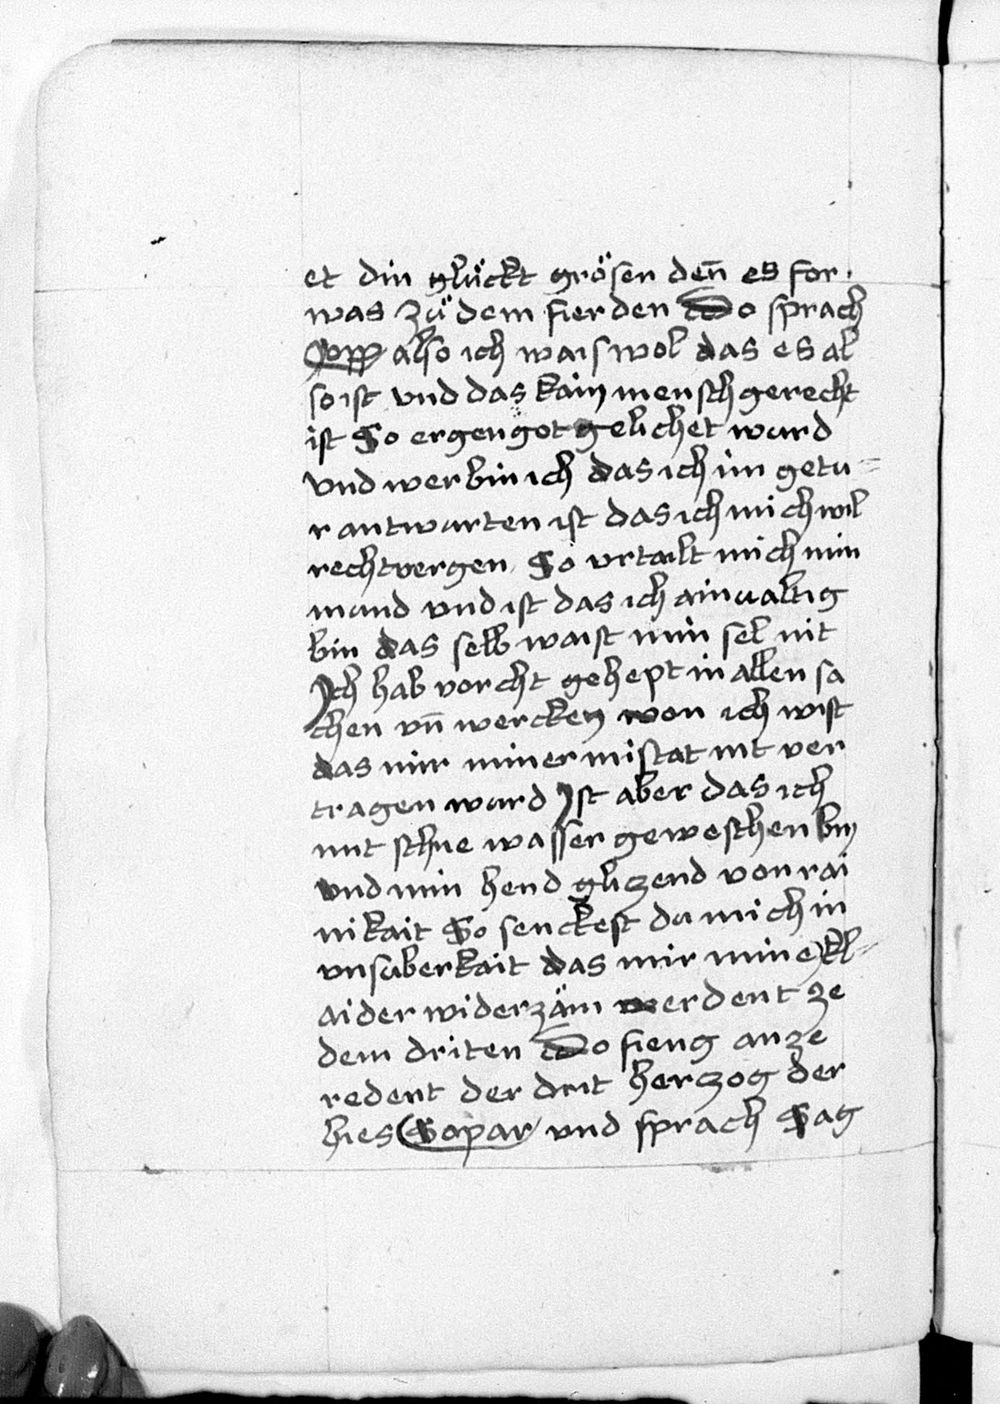 et din glückt grösen deñ es for
was zů dem fierden Do sprach
Jopp also ich wais wol das es al
so ist vnd das kain mensch gerecht
ist So er gen got gelichet ward
vnd wer bin ich das ich im getu=
r antwurten ist das ich mich wil
rechtvergen So vrtailt mich min
mund vnd ist das ich ainualtig
bin das selb waist min sel nit
Ich hab vorcht gehept in allen sa
chen vn̄ wercken won ich wist
das mir miner mistat nit ver
tragen ward Ist aber das ich
mit schne wasser geweschen bin
vnd min hend glizend von rai
nikait So senckest du mich in
vnsuberkait das mir mine kl=
aider widerzäm werdent ze
dem driten Do fieng an ze
redent der drit herzog der
hies Sopar vnd sprach Sag